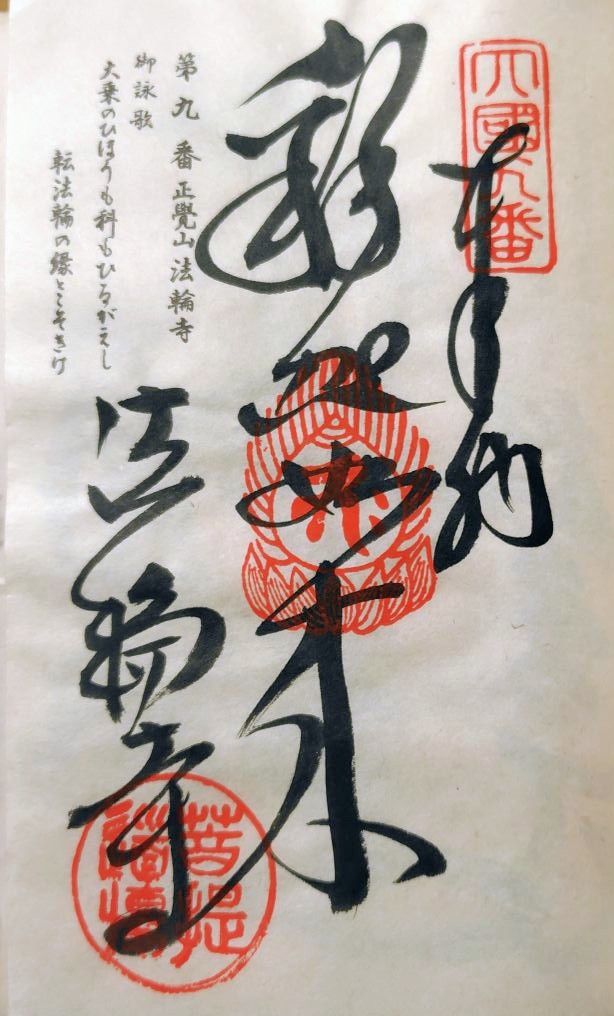 四國九番
奉納
釈迦如来
第九番正覺山法輪寺
御詠歌
大乗のひほうも科もひるがえし
転法輪の縁とこそきけ
法輪寺
菩提
道場